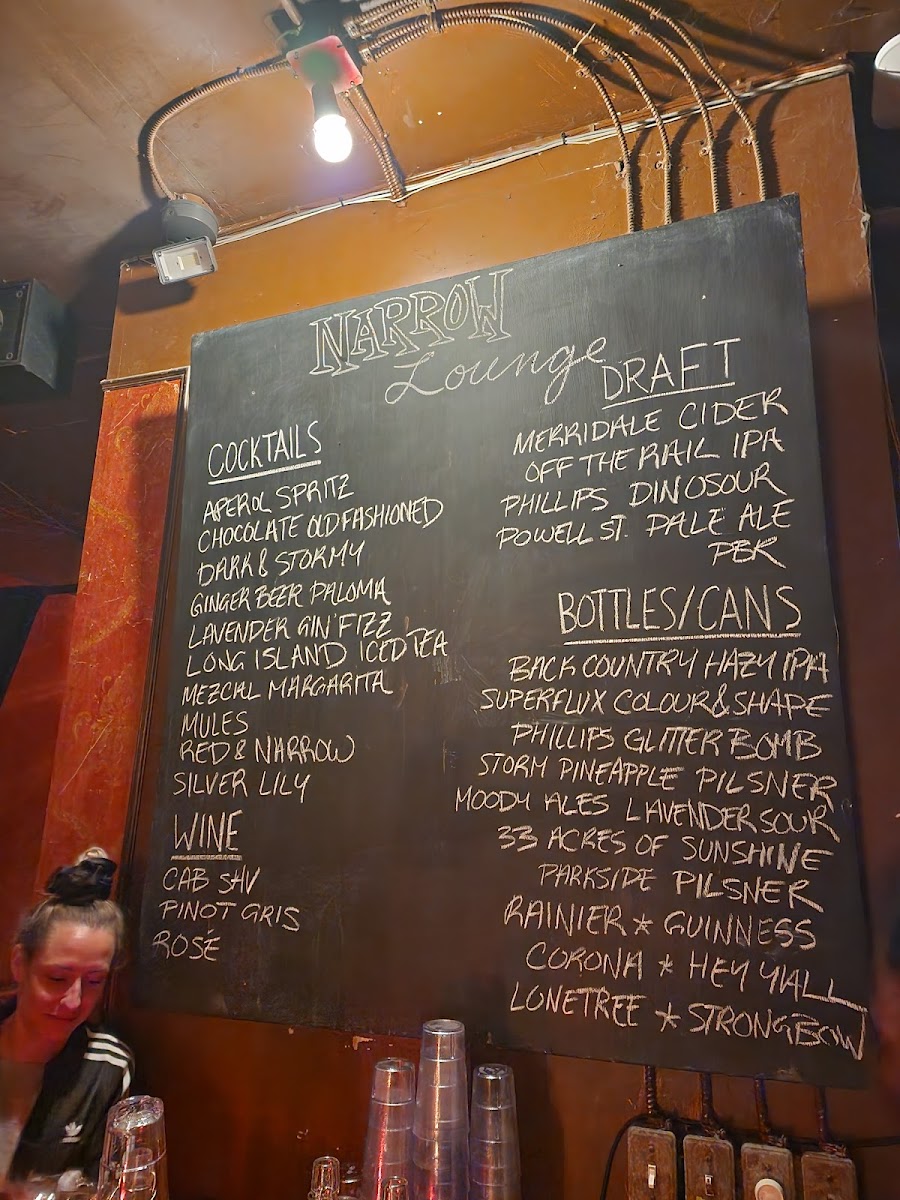 NARROW
Lounge
COCKTAILS
APEROL SPRITZ
CHOCOLATE OLD FASHIONED
DARK & STORMY
GINGER BEER PALOMA
LAVENDER GIN FIZZ
LONG ISLAND ICED TEA
MEZCAL MARGARITA
MULES
RED & NARROW
SILVER LILY
WINE
CAB SAV
PINOT GRIS
ROSÉ
DRAFT
MERRIDALE CIDER
OFF THE RAIL IPA
PHILLIPS DINOSOUR
POWELL ST. PALE ALE
PBR
BOTTLES/CANS
BACK COUNTRY HAZY IPA
SUPERFLUX COLOUR & SHAPE
PHILLIPS GLITTER BOMB
STORM PINEAPPLE PILSNER
MOODY ALES LAVENDER SOUR
33 ACRES OF SUNSHINE
PARKSIDE PILSNER
RAINIER * GUINNESS
CORONA * HEY Y'ALL
LONETREE * STRONGBOW